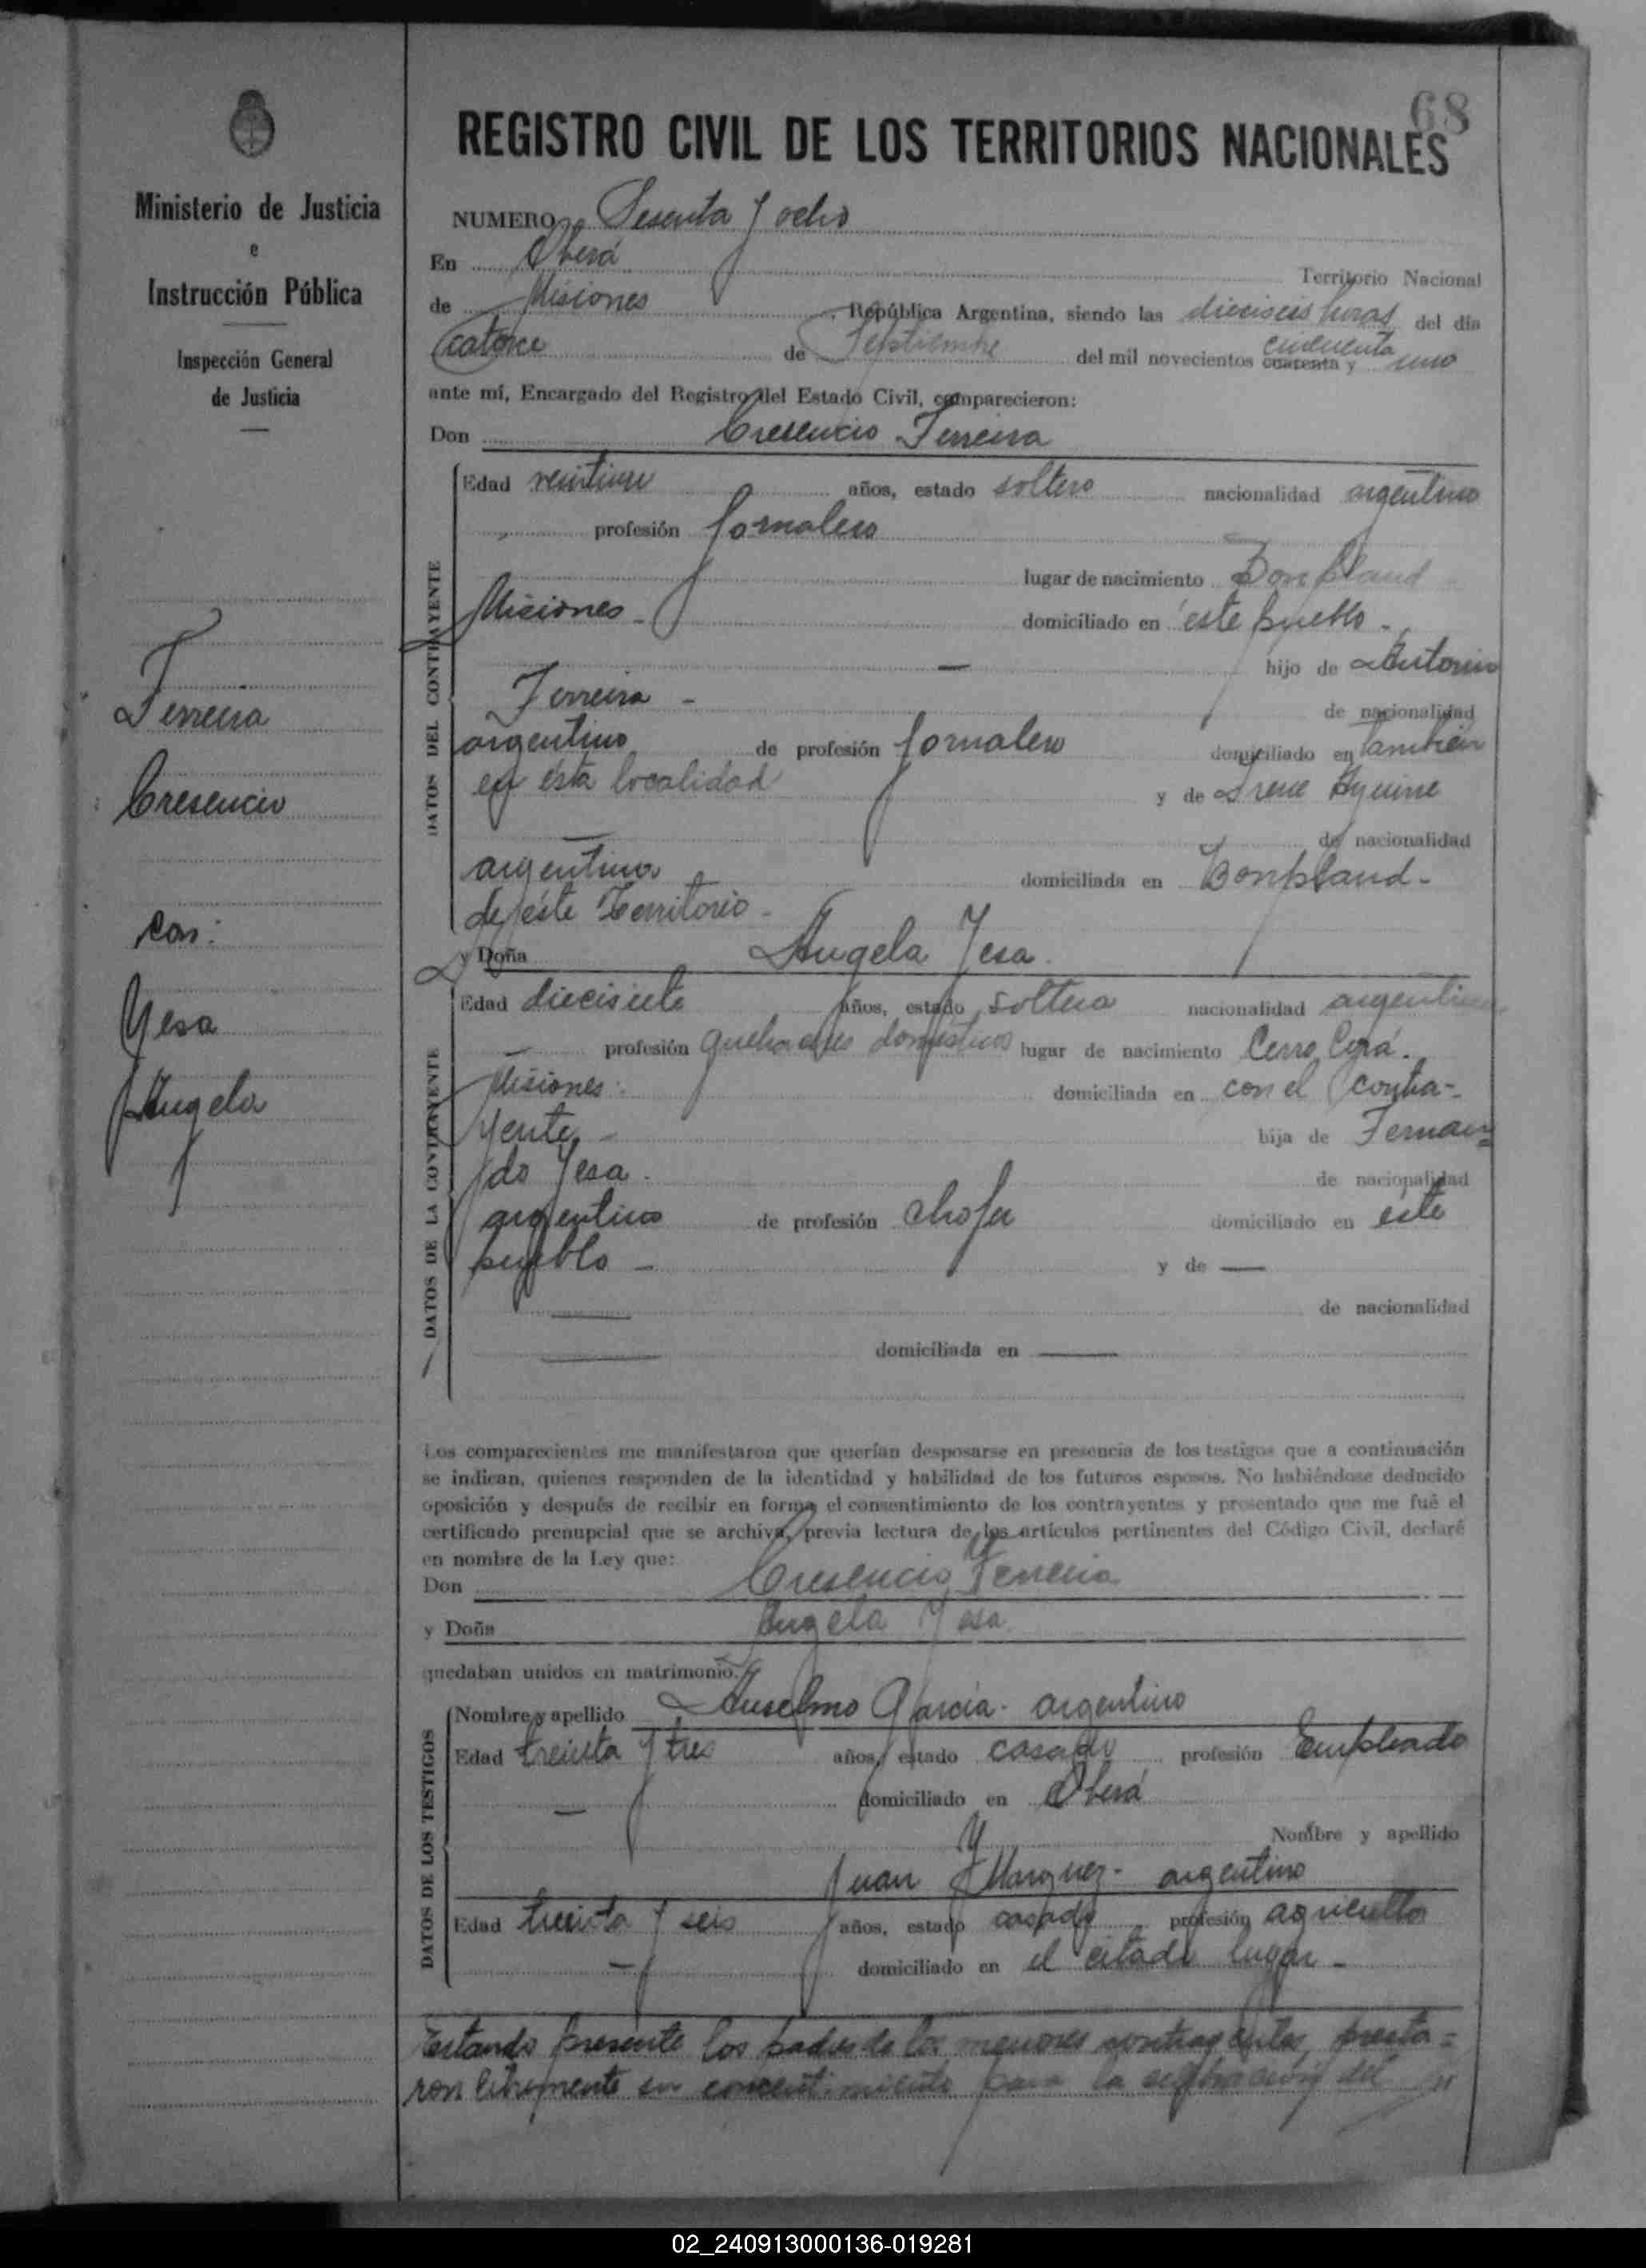 68
REGISTRO CIVIL DE LOS TERRITORIOS NACIONALES
Ministerio de Justicia
e
Instrucción Pública
Inspección General
de Justicia
Ferreira
Cresencio
con:
Yesa
Angela
NUMERO Sesenta y ocho
En Oberá Territorio Nacional
de Misiones, República Argentina, siendo las dieciseis horas del día
catorce de Septiembre del mil novecientos cuarenta y cincuenta uno
ante mí, Encargado del Registro del Estado Civil, comparecieron:
Don Cresencio Ferreira
DATOS DEL CONTRAYENTE
Edad años, estado soltero nacionalidad argentino
profesión Jornalero
lugar de nacimiento Bonpland
Misiones - domiciliado en éste pueblo -
- hijo de Antonio
Ferreira - de nacionalidad
argentino de profesión Jornalero domiciliado en también
en ésta localidad y de Irene
de nacionalidad
argentina domiciliada en Bonpland -
de éste Territorio -
y Doña Angela Yesa
DATOS DE LA CONTRAYENTE
Edad diecisiete años, estado soltera nacionalidad argentina
profesión quehaceres domésticos lugar de nacimiento Cerro Corá.
Misiones. domiciliada en con el contra-
yente - hija de Fernan-
do Yesa. de nacionalidad
argentino de profesión chofer domiciliado en este
pueblo - y de —
— de nacionalidad
— domiciliada en —
Los comparecientes me manifestaron que querían desposarse en presencia de los testigos que a continuación
se indican, quienes responden de la identidad y habilidad de los futuros esposos. No habiéndose deducido
oposición y después de recibir en forma el consentimiento de los contrayentes y presentado que me fué el
certificado prenupcial que se archiva, previa lectura de los artículos pertinentes del Código Civil, declaré
en nombre de la Ley que:
Don Cresencio Ferreira
y Doña Angela Yesa
quedaban unidos en matrimonio.
DATOS DE LOS TESTIGOS
Nombre y apellido Anselmo García - argentino
Edad treinta y tres años, estado casado profesión Empleado
- domiciliado en Oberá
y Nombre y apellido
Juan Marquez - argentino
Edad treinta y seis años, estado casado profesión agricultor
- domiciliado en el citado lugar -
Estando presente los padres de los menores contrayentes, presta=
ron libremente su concentimiento para la del
02_240913000136-019281